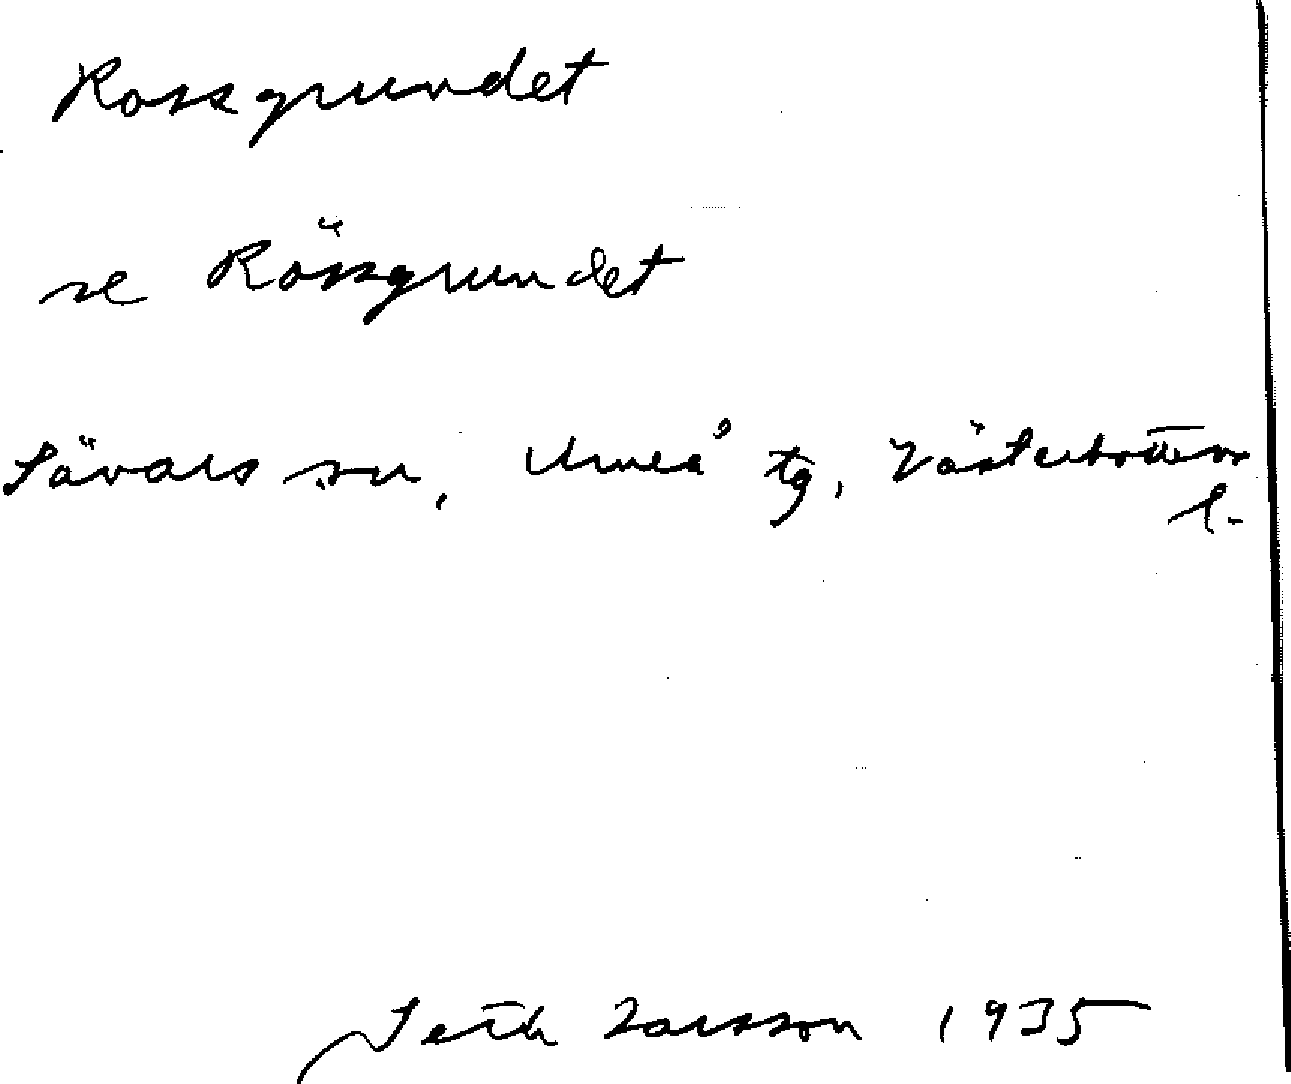 Rossgrundet
se Rössgrundet
Sävars sn, Umeå tg, Västerbottens
l.
Seth Larsson 1935